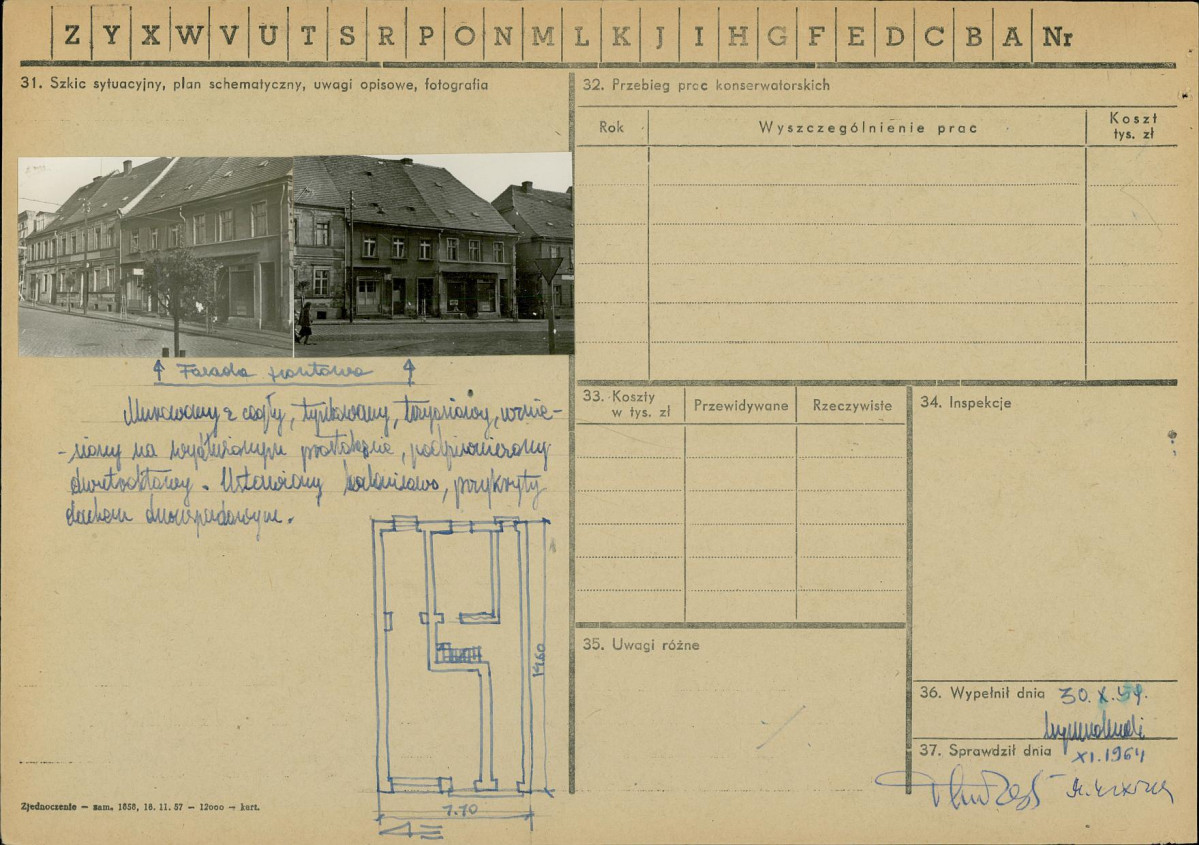 Z Y X W V U T S R P O N M L K J I H G F E D C B A Nr
31. Szkic sytuacyjny, plan schematyczny, uwagi opisowe, fotografia
Fasada frontowa
Murowany z cegły, tynkowany,
na wydłużonym prostokącie, podpiwniczony
dwutraktowy. Ustawiony kalenicowo, przykryty
dachem dwuspadowym.
14.60
7.10
Zjednoczenie — zam. 1858, 16. 11. 57 — 12000 — kart.
32. Przebieg prac konserwatorskich
Rok
Wyszczególnienie prac
Koszt
tys. zł
33. Koszty
w tys. zł
Przewidywane
Rzeczywiste
34. Inspekcje
35. Uwagi różne
36. Wypełnił dnia 30.X.59.
37. Sprawdził dnia
XI.1964